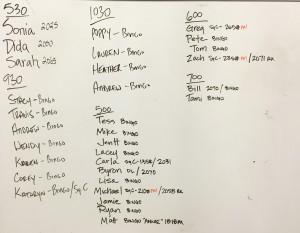 530
Sonia 2025
Dida 2000
Sarah 2025
930
Stacy - Bingo
Travis - Bingo
Andrew - Bingo
Wendy - Bingo
Karen - Bingo
Corey - Bingo
Kathryn - Bingo/SGC
1030
Poppy - Bingo
Lauren - Bingo
Heather - Bingo
Andrew - Bingo
500
Tess BINGO
Mike BINGO
Jenft BINGO
Lacey BINGO
Carla SGC-1558/2031
Byron DL/2030
Lisa BINGO
Michael SGC-
Jamie BINGO
Ryan BINGO
Matt BINGO
600
Greg SGC-
Pete BINGO
Tom BINGO
Zach SGC-
700
Bill 2070/BINGO
Tami BINGO